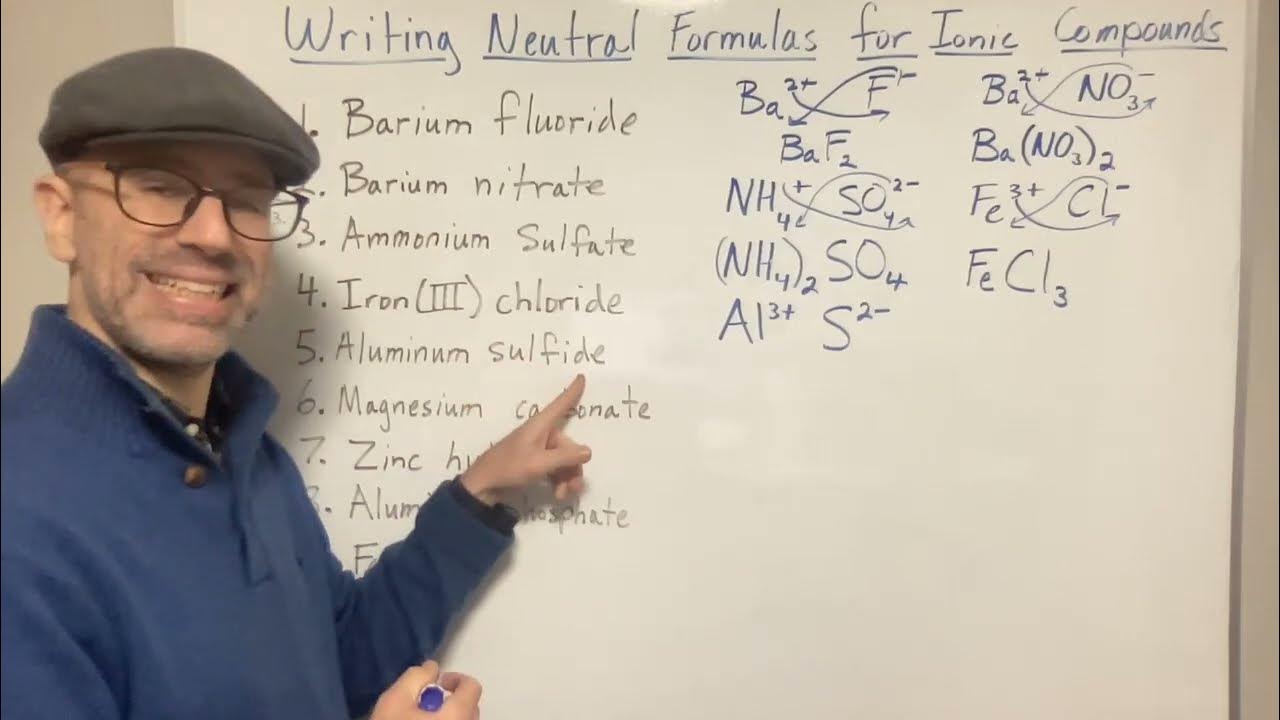 Writing Neutral Formulas for Ionic Compounds
1. Barium fluoride
2. Barium nitrate
3. Ammonium Sulfate
4. Iron(III) chloride
5. Aluminum sulfide
6. Magnesium carbonate
7. Zinc
phosphate
Ba²⁺ F¹⁻
BaF₂
NH₄⁺ SO₄²⁻
(NH₄)₂SO₄
Al³⁺ S²⁻
Ba²⁺ NO₃⁻
Ba(NO₃)₂
Fe³⁺ Cl⁻
FeCl₃